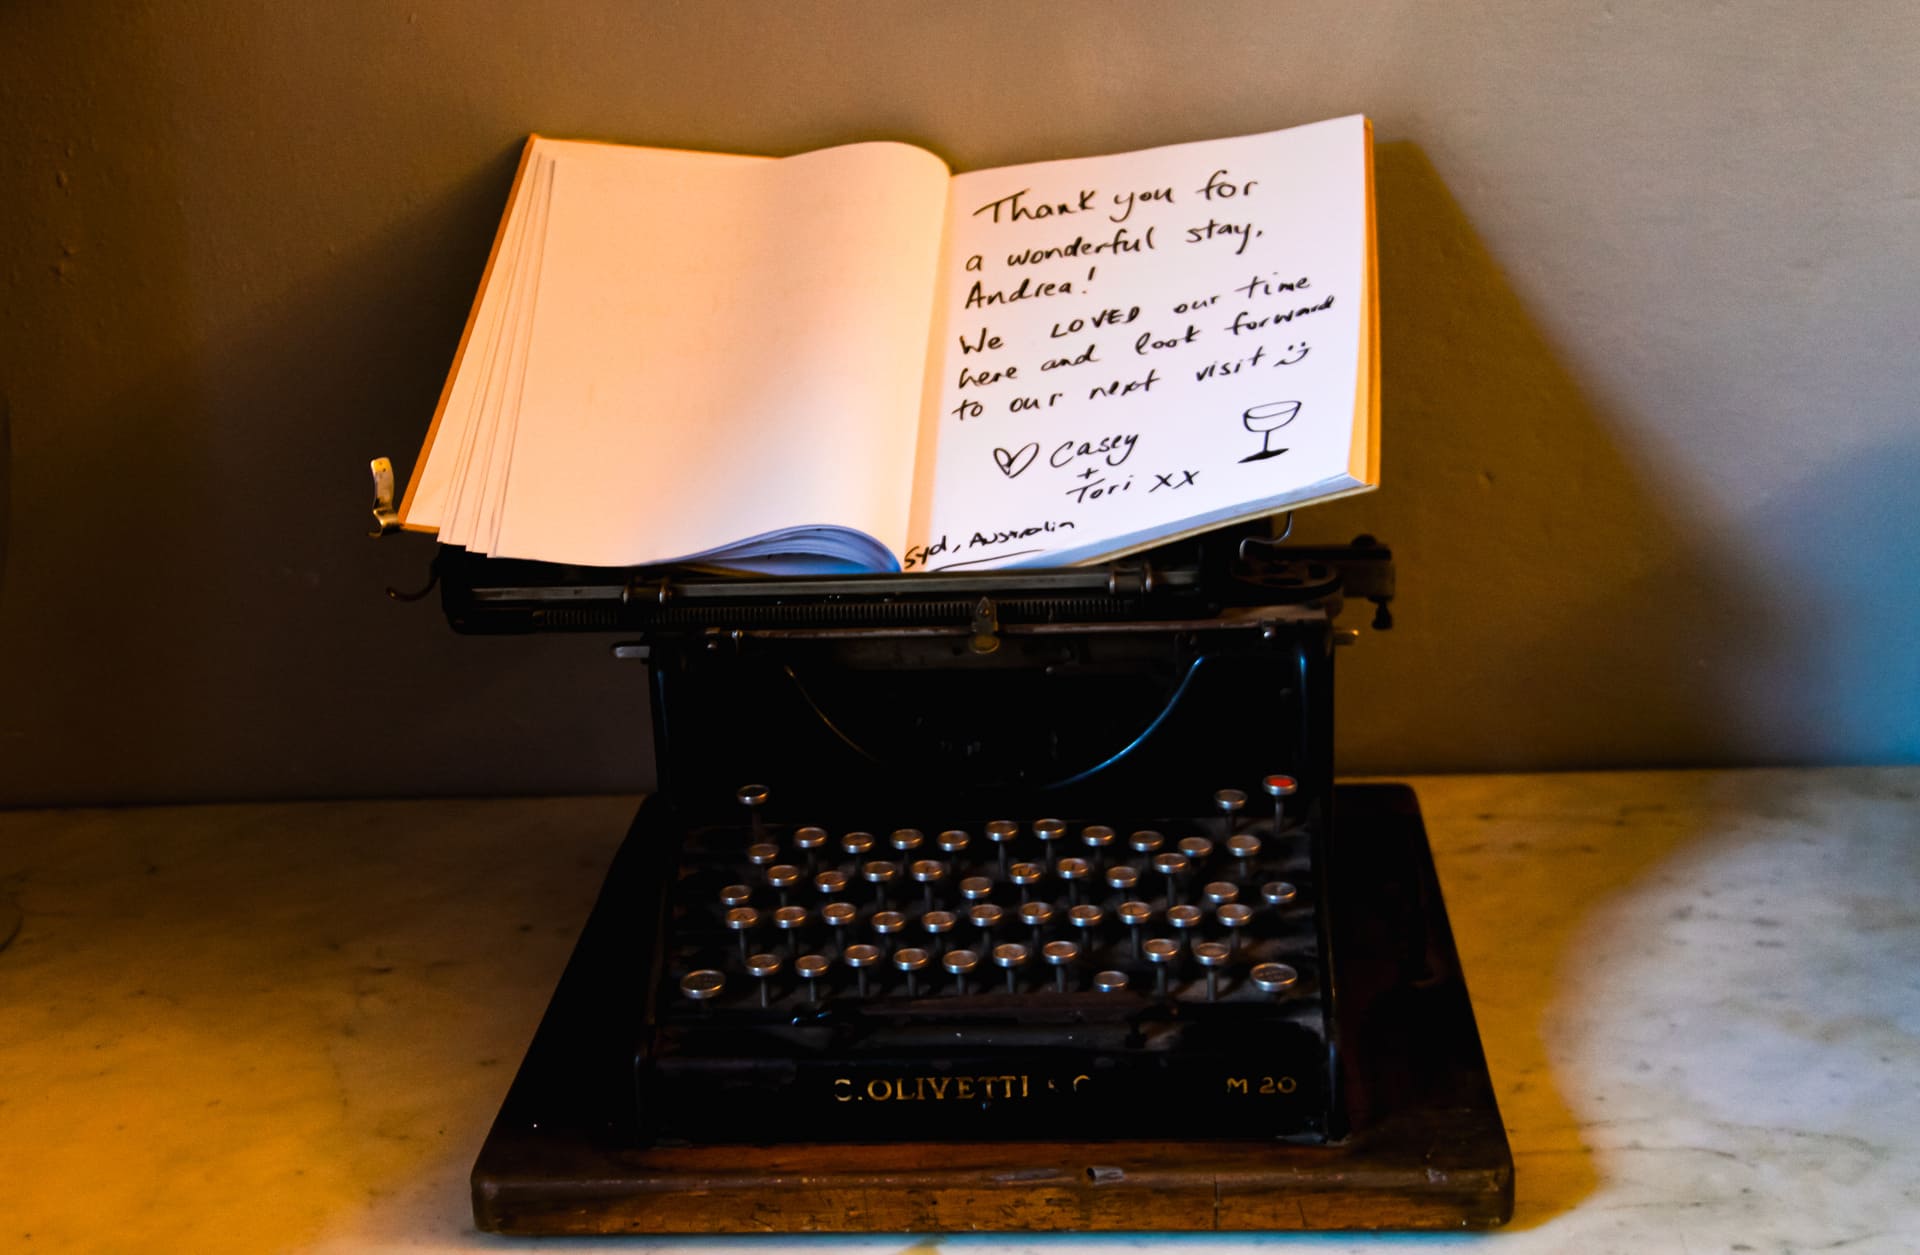 Thank you for
a wonderful stay,
Andrea!
We LOVED our time
here and look forward
to our next visit
Casey
+
Tori XX
Syd, Australia
C.OLIVETTI & C
M 20